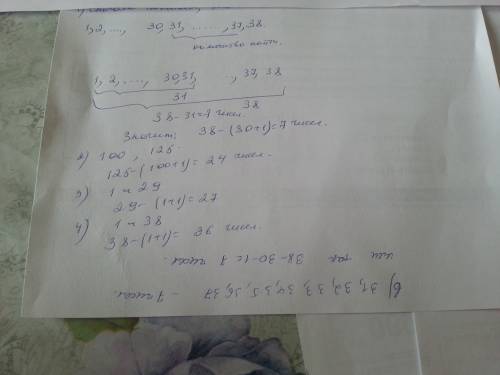 1, 2, ...., 30, 31, ......, 37, 38.
количество найти.
1, 2, ...., 30, 31, .., 37, 38
31
38
38 - 31 = 7 чисел.
Значит: 38 - (30+1) = 7 чисел.
2) 100, 125
125 - (100+1) = 24 чисел.
3) 1 и 29
29 - (1+1) = 27
4) 1 и 38
38 - (1+1) = 36 чисел.
или так 38-30-1= 7 чисел.
б) 31, 32, 33, 34, 35, 36, 37 - 7 чисел.